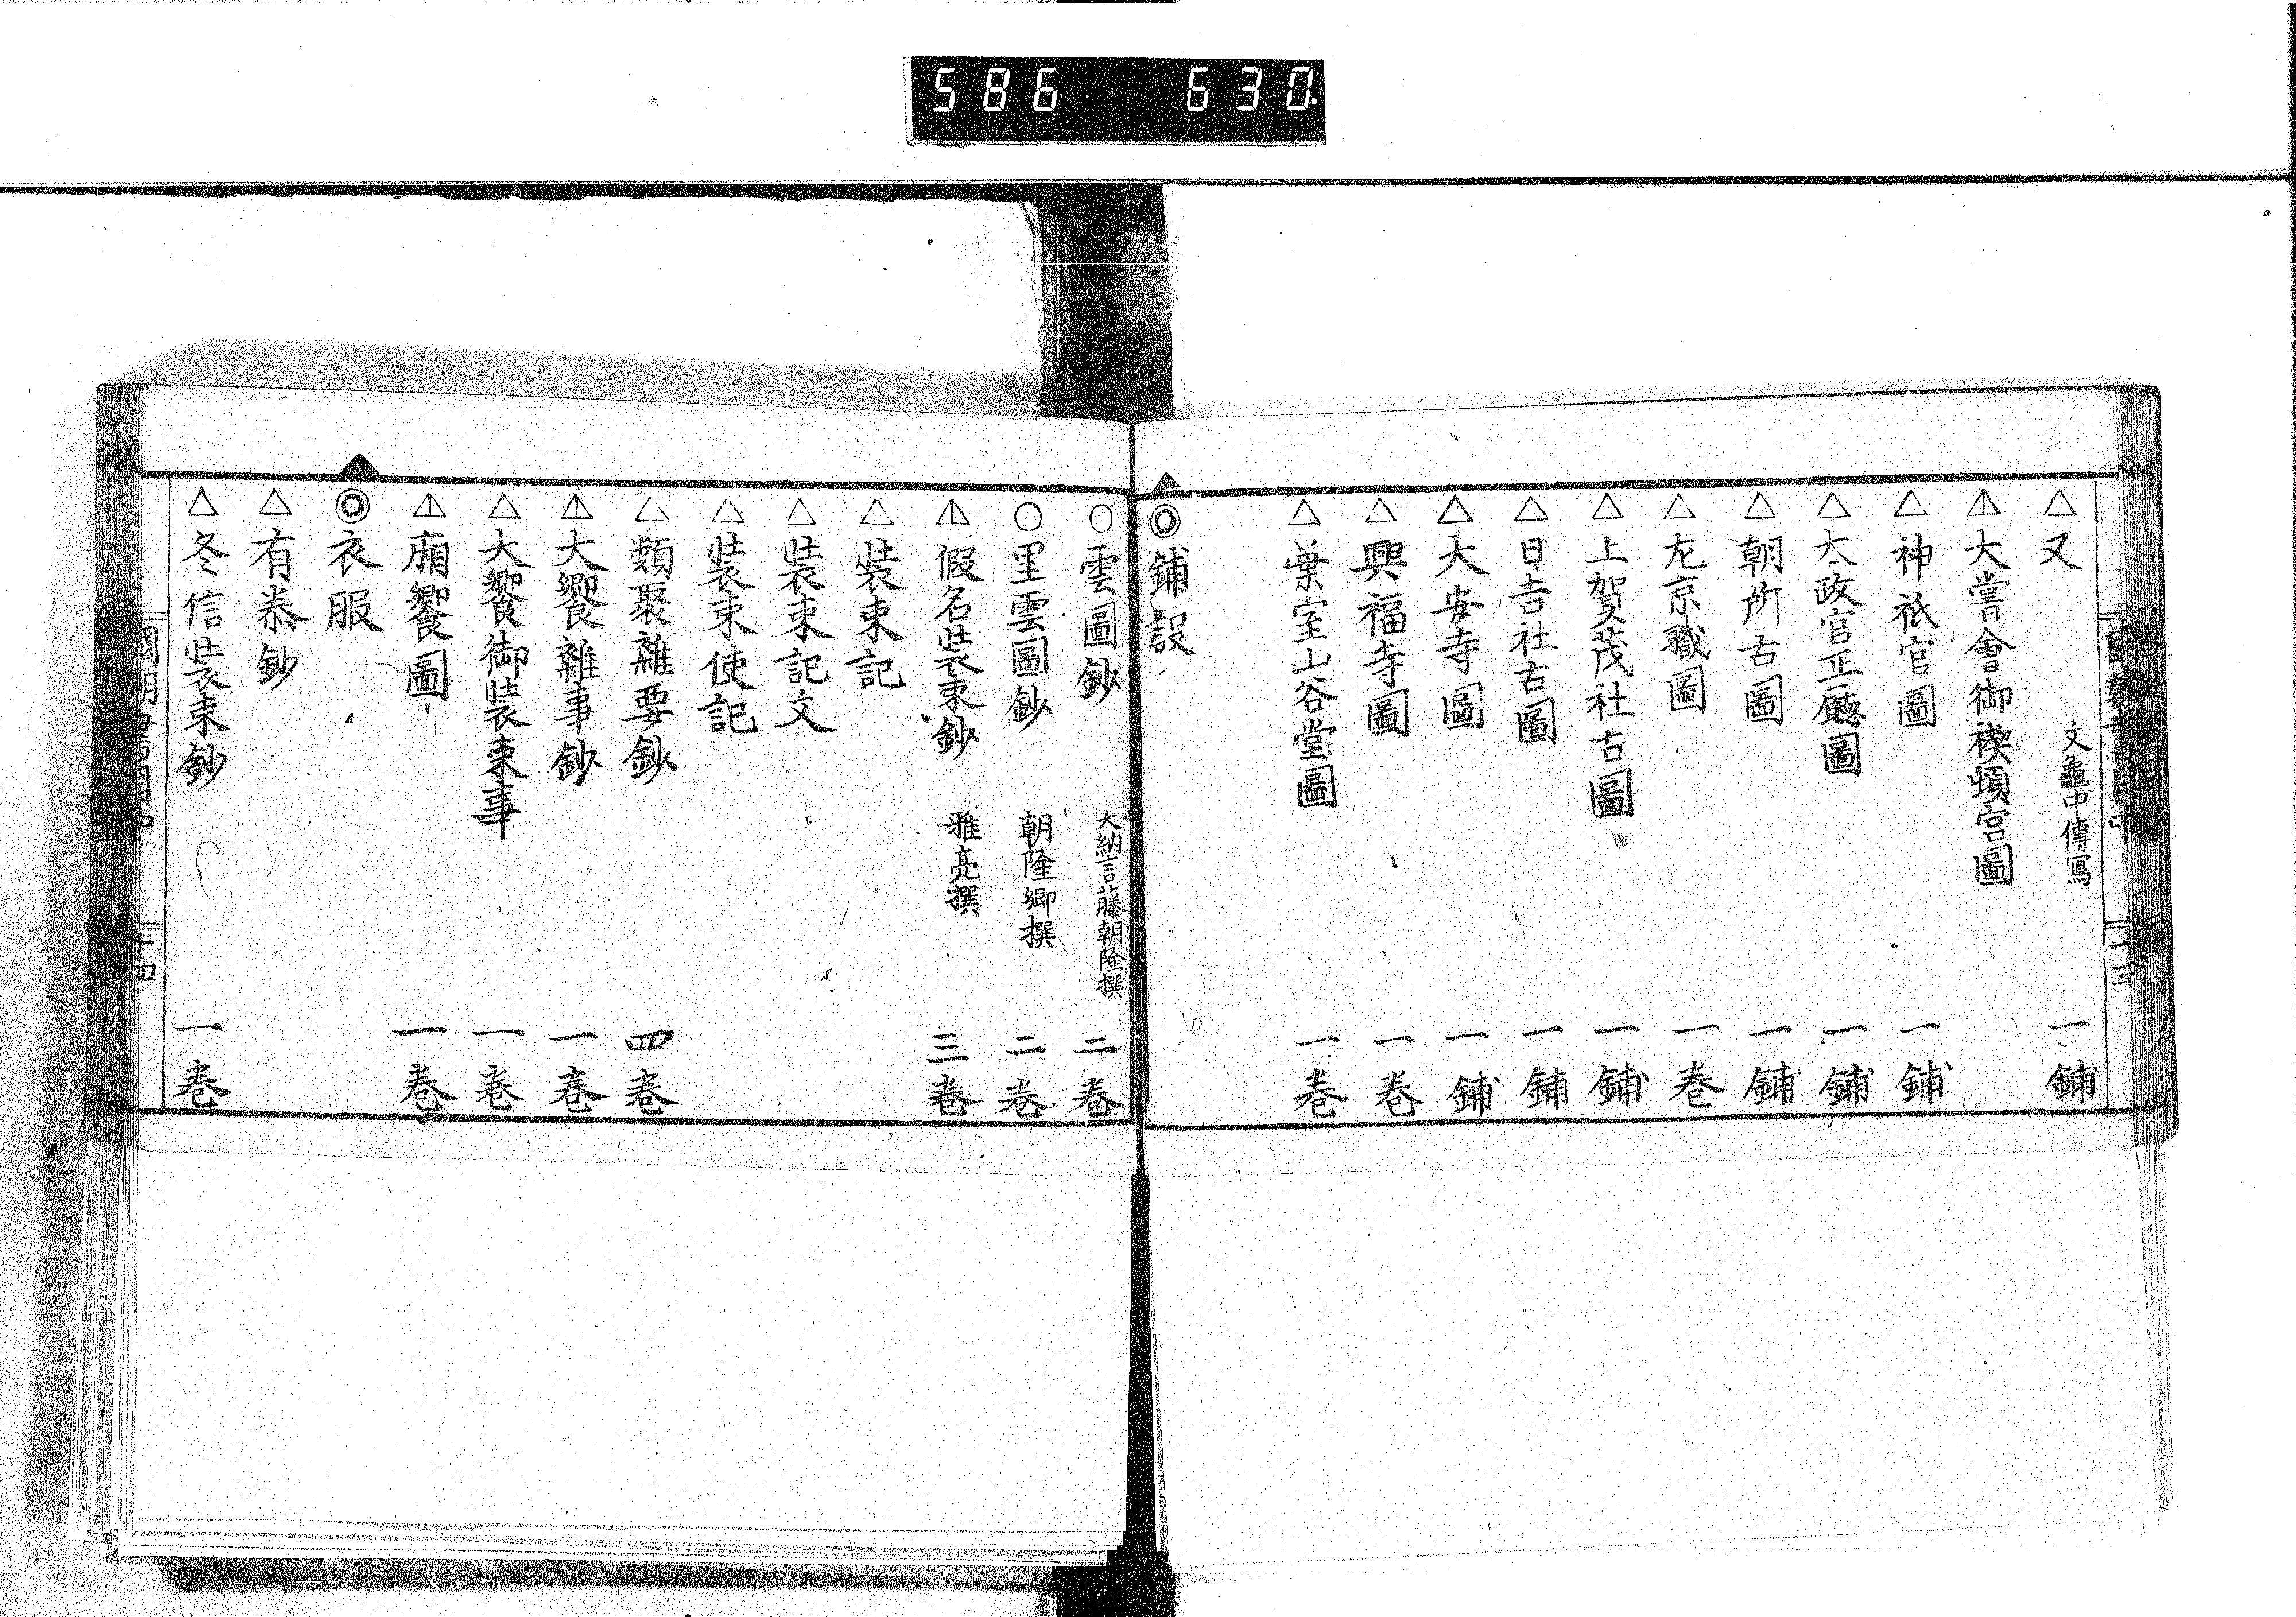 586 630
△又 文龜中傳寫 一鋪
△大嘗會御禊頓宮圖
△神祇官圖 一鋪
△太政官正廳圖 一鋪
△朝所古圖 一鋪
△左京職圖 一卷
△上賀茂社古圖 一鋪
△日吉社古圖 一鋪
△大安寺圖 一鋪
△興福寺圖 一卷
△葉室山谷堂圖 一卷
◎鋪設
○雲圖鈔 大納言藤朝隆撰 二卷
○里雲圖鈔 朝隆卿撰 二卷
△假名裝束鈔 雅亮撰 三卷
△裝束記
△裝束記文
△裝束使記
△類聚雜要鈔 四卷
△大饗雜事鈔 一卷
△大饗御裝束事 一卷
△廂饗圖 一卷
◎衣服
△有恭鈔
△冬信裝束鈔 一卷
十四